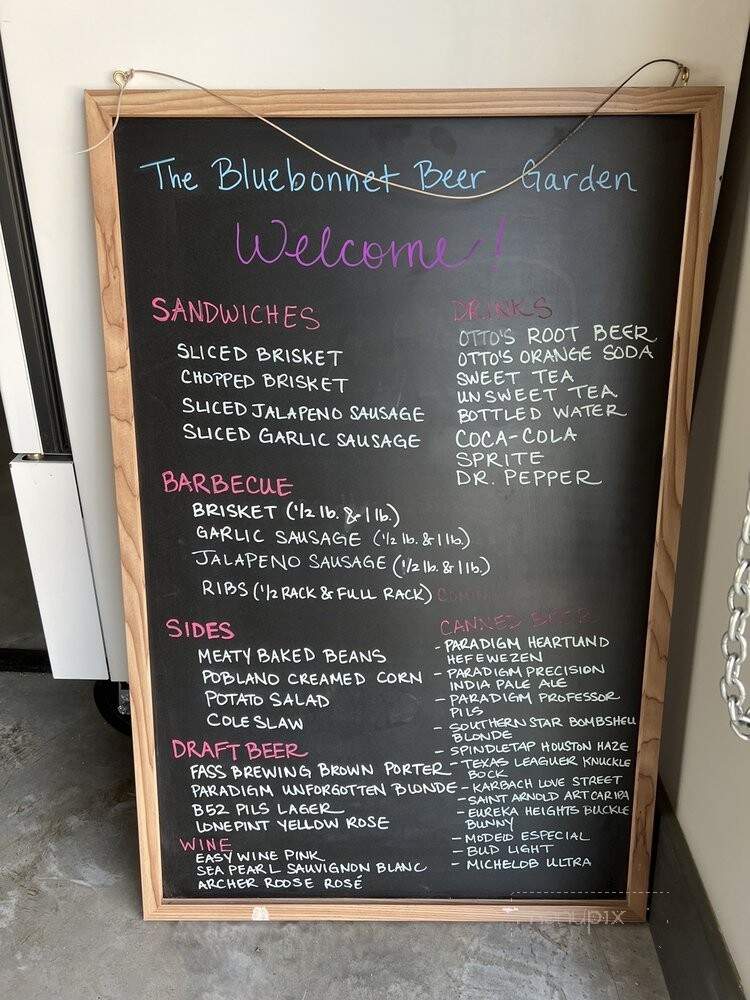 The Bluebonnet Beer Garden
Welcome!
SANDWICHES
SLICED BRISKET
CHOPPED BRISKET
SLICED JALAPENO SAUSAGE
SLICED GARLIC SAUSAGE
BARBECUE
BRISKET (1/2 lb. & 1 lb.)
GARLIC SAUSAGE (1/2 lb. & 1 lb.)
JALAPENO SAUSAGE (1/2 lb. & 1 lb.)
RIBS (1/2 RACK & FULL RACK)
SIDES
MEATY BAKED BEANS
POBLANO CREAMED CORN
POTATO SALAD
COLESLAW
DRAFT BEER
FASS BREWING BROWN PORTER
PARADIGM UNFORGOTTEN BLONDE
B52 PILS LAGER
LONEPINT YELLOW ROSE
WINE
EASY WINE PINK
SEA PEARL SAUVIGNON BLANC
ARCHER ROOSE ROSÉ
DRINKS
OTTO'S ROOT BEER
OTTO'S ORANGE SODA
SWEET TEA
UNSWEET TEA
BOTTLED WATER
COCA-COLA
SPRITE
DR. PEPPER
CANNED BEER
- PARADIGM HEARTLAND
HEFEWEZEN
- PARADIGM PRECISION
INDIA PALE ALE
- PARADIGM PROFESSOR
PILS
- SOUTHERN STAR BOMBSHELL
BLONDE
- SPINDLETAP HOUSTON HAZE
- TEXAS LEAGUER KNUCKLE
BOCK
- KARBACH LOVE STREET
- SAINT ARNOLD ART CAR IPA
- EUREKA HEIGHTS BUCKLE
BUNNY
- MODELO ESPECIAL
- BUD LIGHT
- MICHELOB ULTRA
menupix